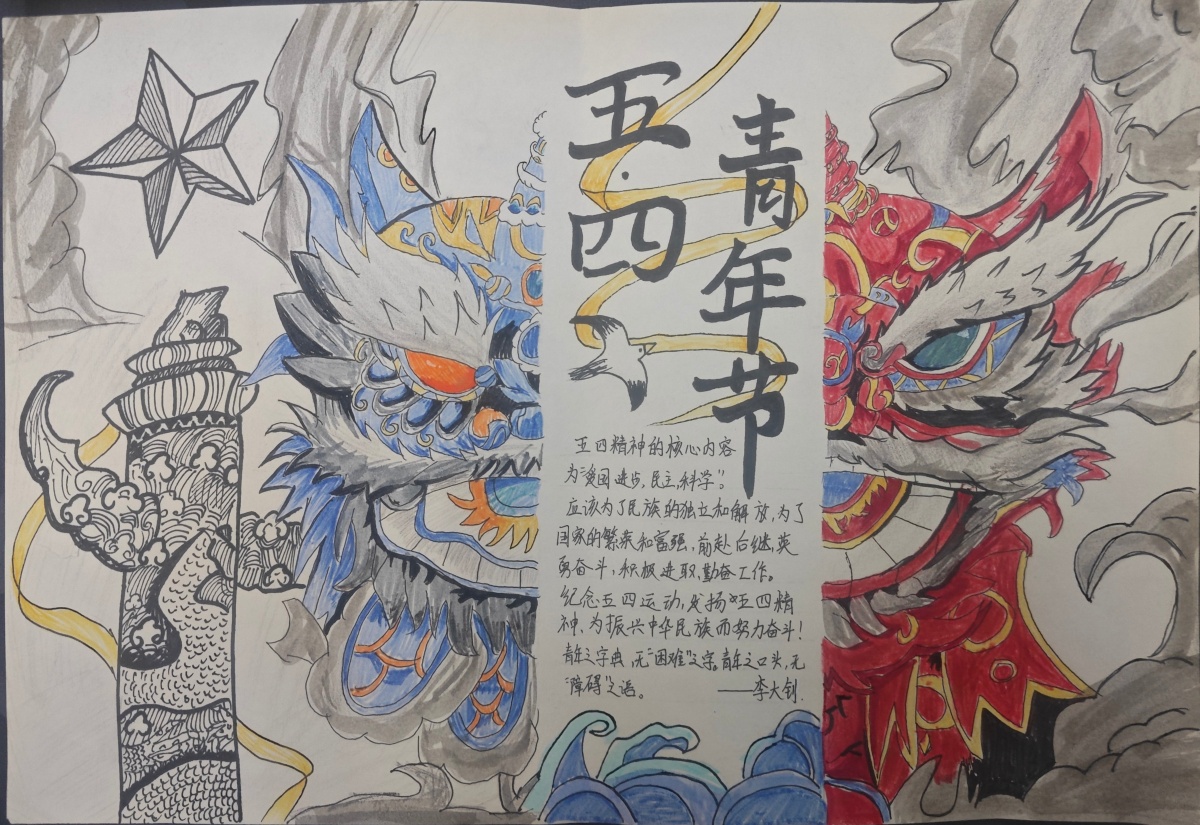 五四
青年节
五四精神的核心内容
为“爱国、进步、民主、科学”。
应该为了民族的独立和解放,为了
国家的繁荣和富强,前赴后继,英
勇奋斗,积极进取,勤奋工作。
纪念五四运动,发扬五四精
神、为振兴中华民族而努力奋斗!
青年之字典,无“困难”之字。青年之口头,无
“障碍”之语。 ——李大钊.